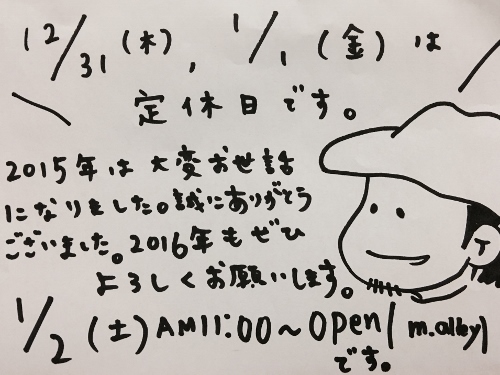 12/31(木), 1/1(金)は
定休日です。
2015年は大変お世話
になりました。誠にありがとう
ございました。2016年もぜひ
よろしくお願いします。
1/2(土)AM11:00~Open(m.alley)
です。